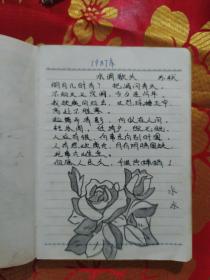 1987年
水调歌头 苏轼
明月几时有？把酒问青天。
不知天上宫阙，今夕是何年。
我欲乘风归去，又恐琼楼玉宇，
高处不胜寒。
起舞弄清影，何似在人间。
转朱阁，低绮户，照无眠。
不应有恨，何事长向别时圆。
人有悲欢离合，月有阴晴圆缺，
此事古难全。
但愿人长久，千里共婵娟！